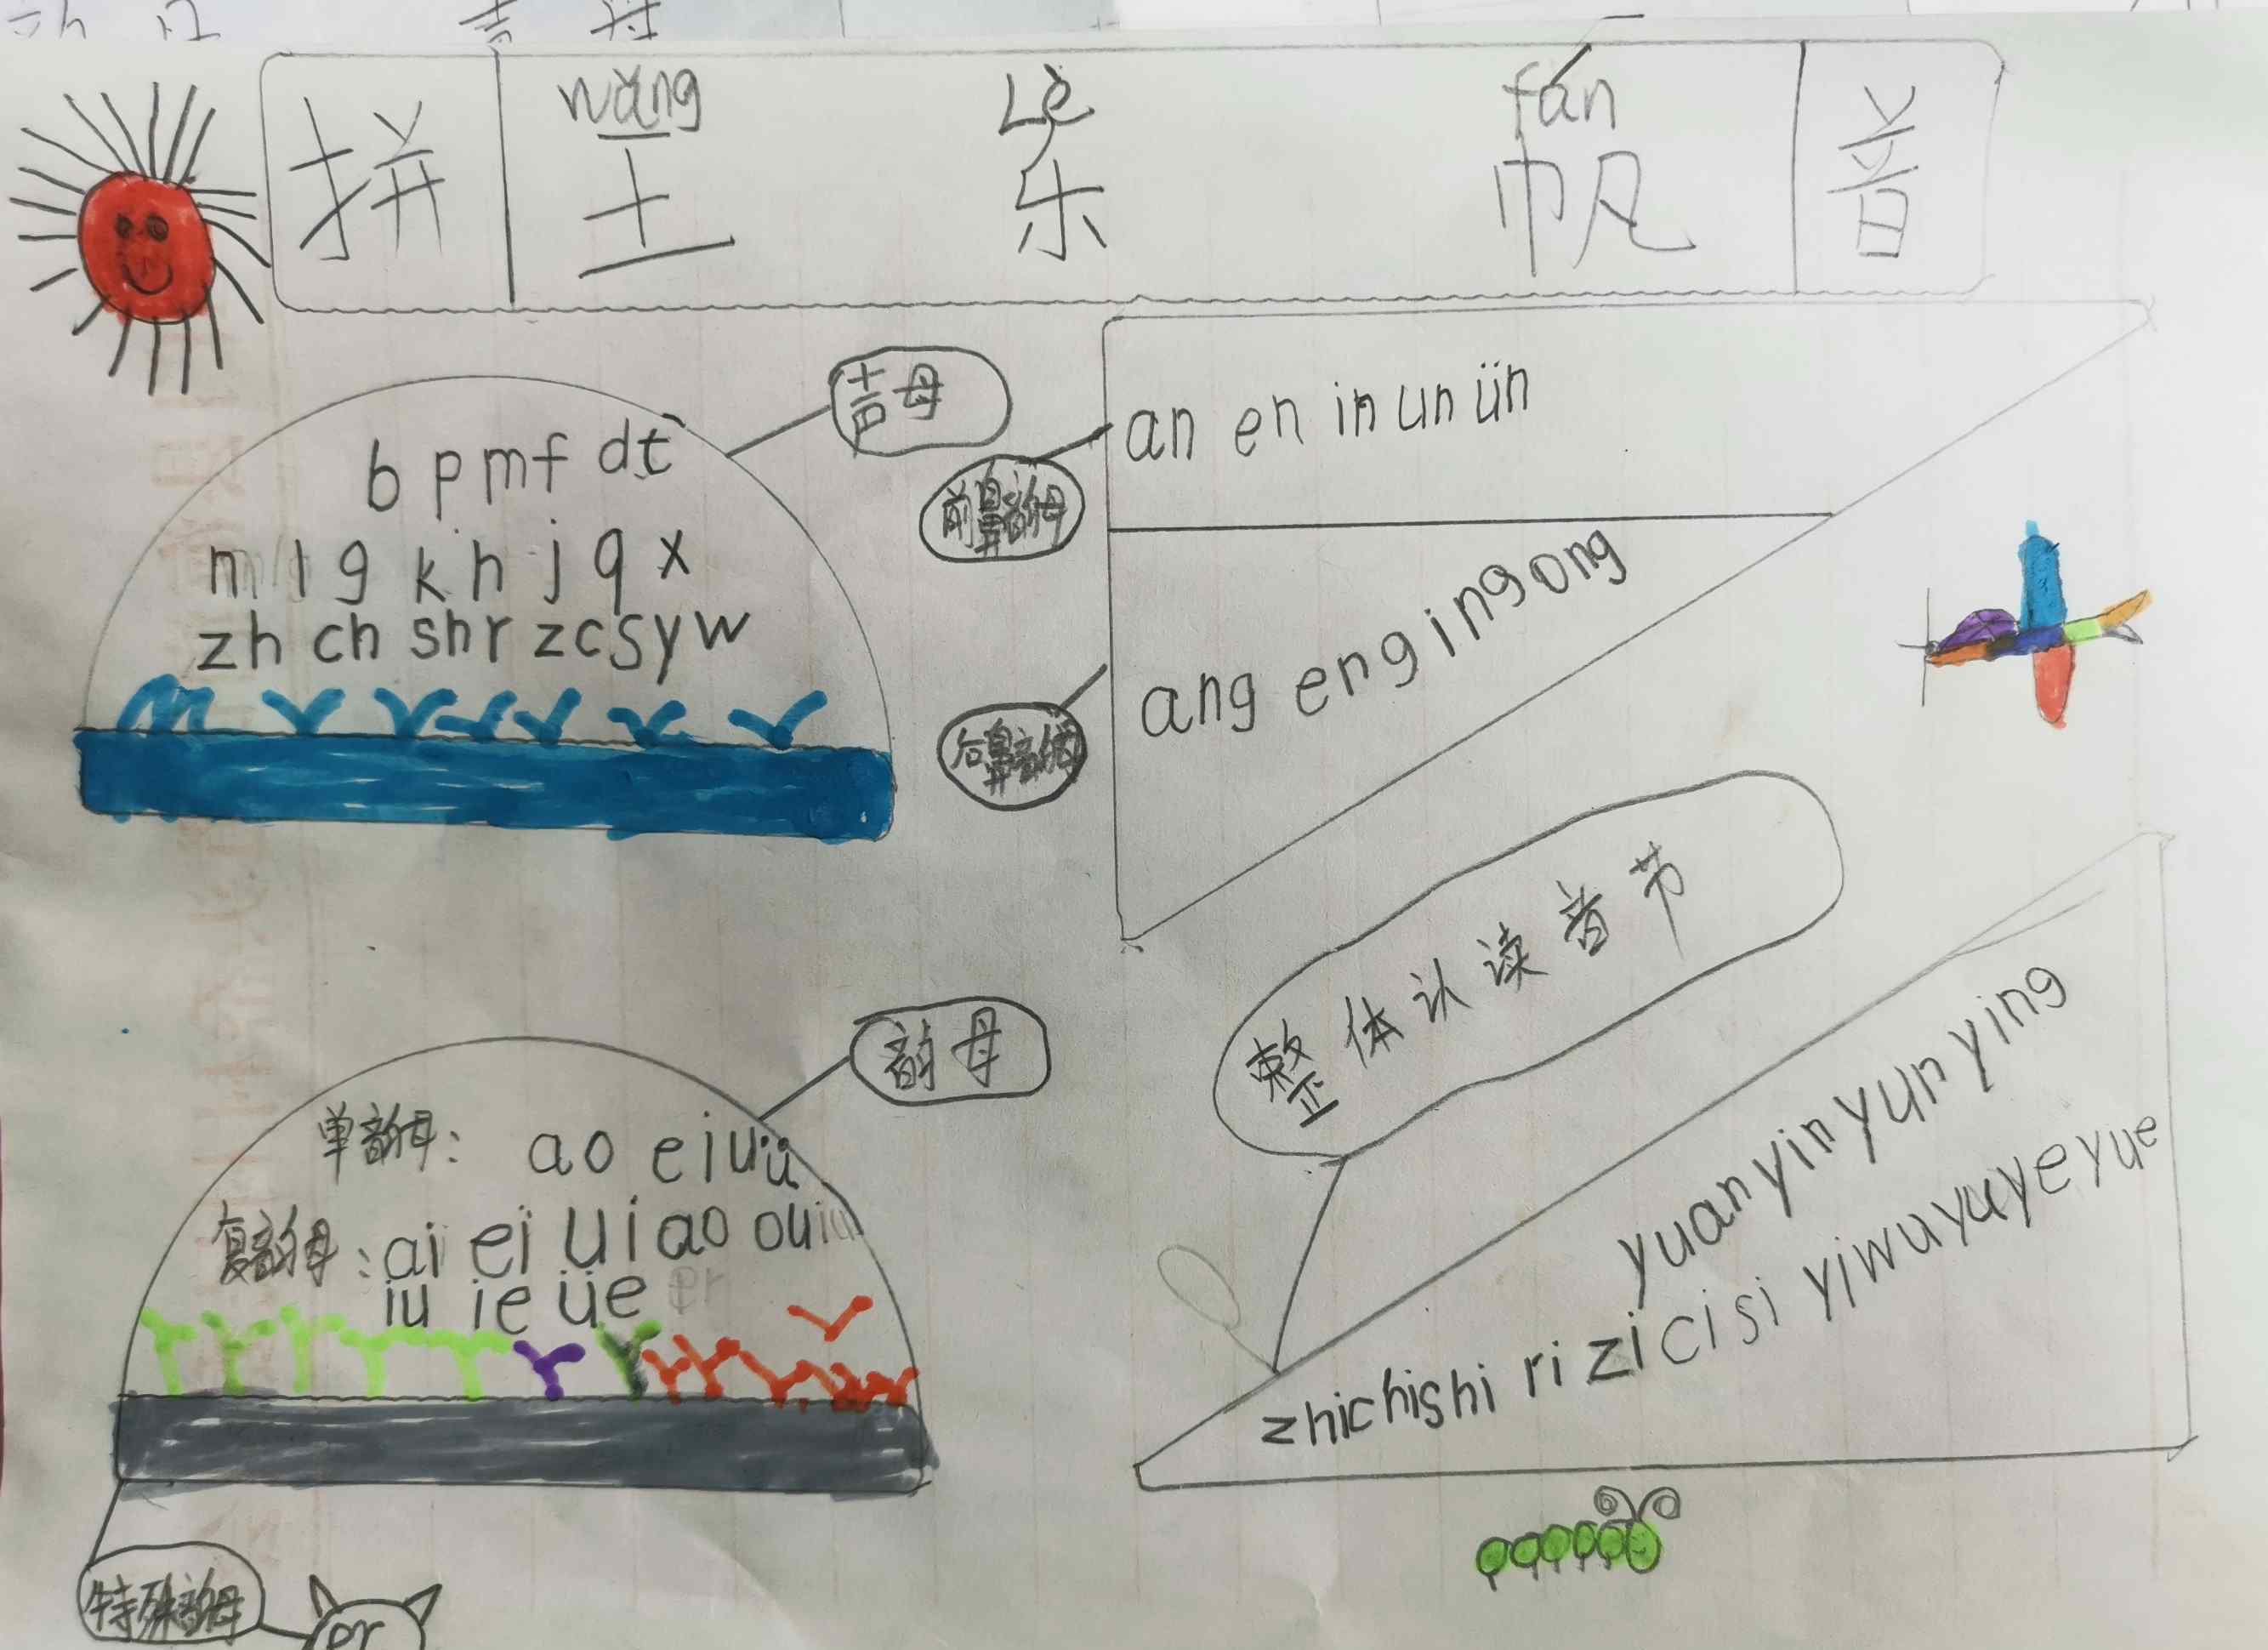 拼 wáng Lè fán 音
王 乐 帆
声母
b p m f d t
n l g k h j q x
zh ch sh r z c s y w
前鼻韵母
an en in un ün
后鼻音韵母
ang eng ing ong
整体认读音节
yuan yin yun ying
zhi chi shi ri zi ci si yi wu yu ye yue
韵母
单韵母： a o e i u ü
复韵母：ai ei ui ao ou
iu ie üe
特殊韵母
er